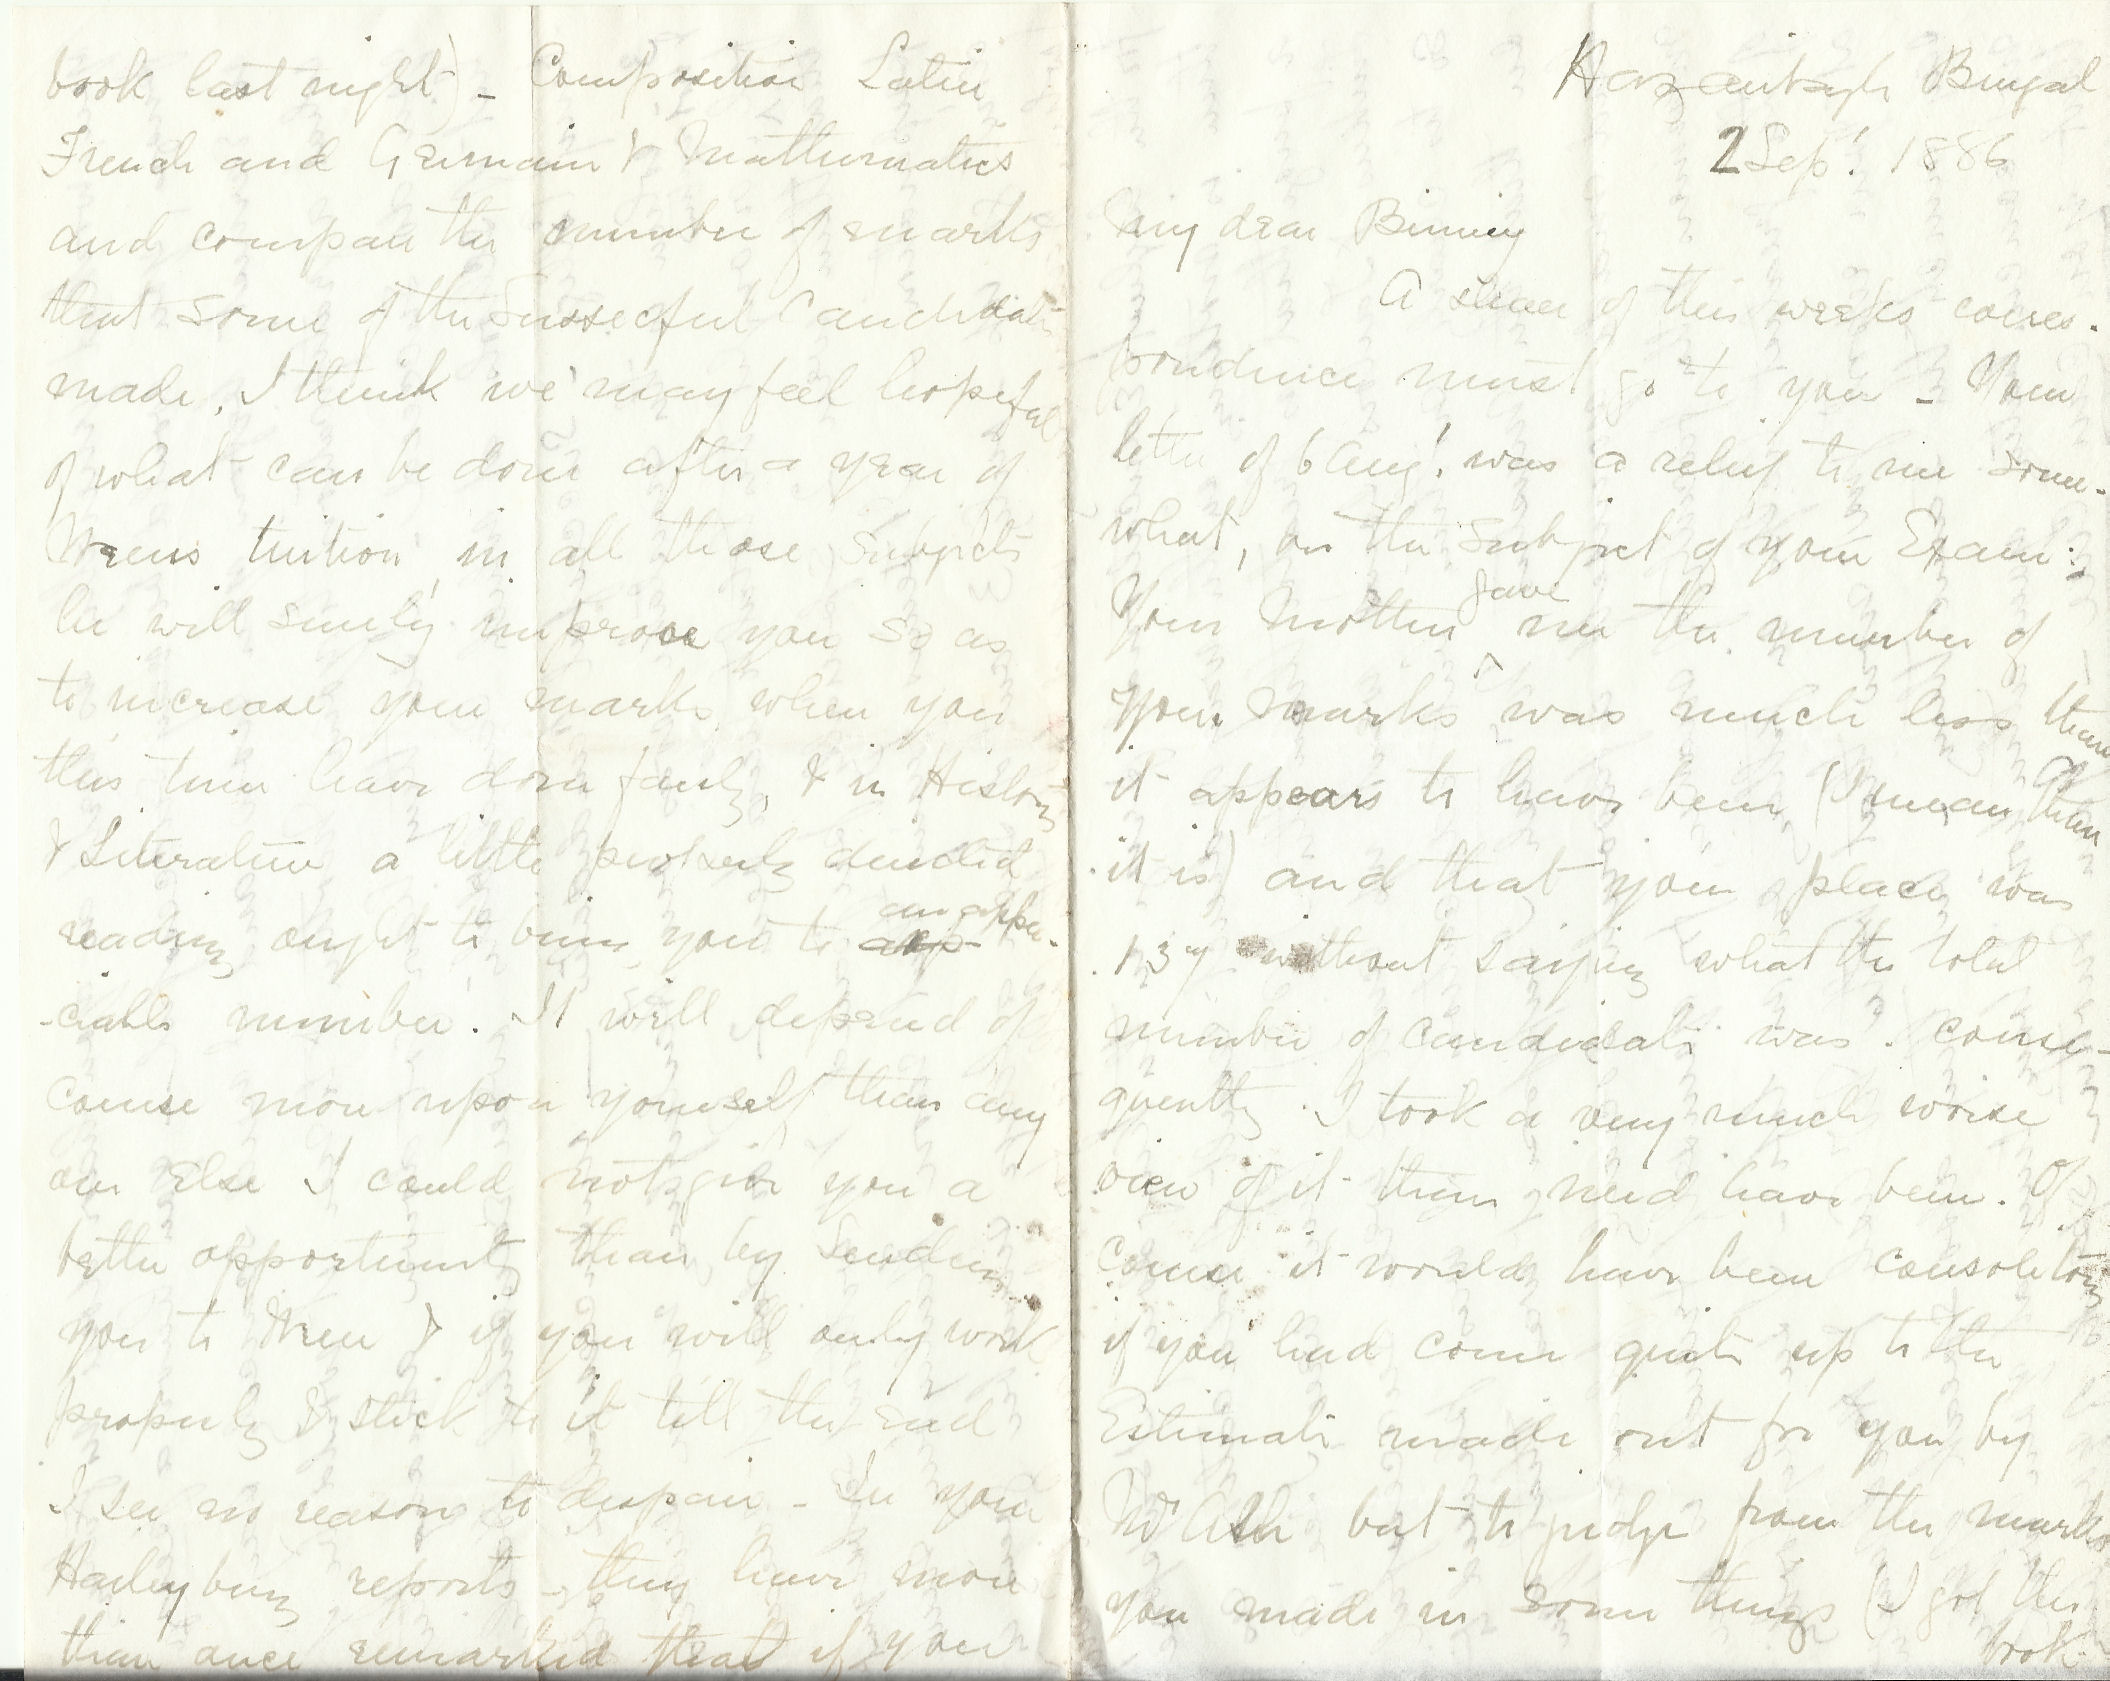 Hazaribagh Bengal
2 Sept. 1886
My dear Binning
A share of this weeks corres-
pondence must go to you - Your
letter of 6 Aug! was a relief to me some-
what, on the subject of your Exam:
Your Mother gave me the number of
your marks was much less than
it appears to have been (I mean than
it is) and that your place was
137 without saying what the total
number of candidates was. conse-
quently I took a very much worse
view of it than need have been. Of
course it would have been consolatory
if you had come quite up to the
Estimate made out for you by
Mr Ash but to judge from the marks
you made in some things (I got the
book
book last night) - Composition Latin
French and German & Mathematics
and compare the number of marks
that some of the Sussecful Candidates
made, I think we may feel hopeful
of what can be done after a year of
Wrens tuition, in all those subjects
he will surely improve you so as
to increase your marks when you
this time have done fairly, & in History
& Literature a little properly directed
reading ought to bring you to an appre-
-ciable number. It will depend of
course more upon yourself than any
one Else I could not give you a
better opportunity than by sending
you to Wren & if you will only work
properly & stick to it till the end
I see no reason to despair - In your
Haileybury reports - they have more
than once remarked that if you